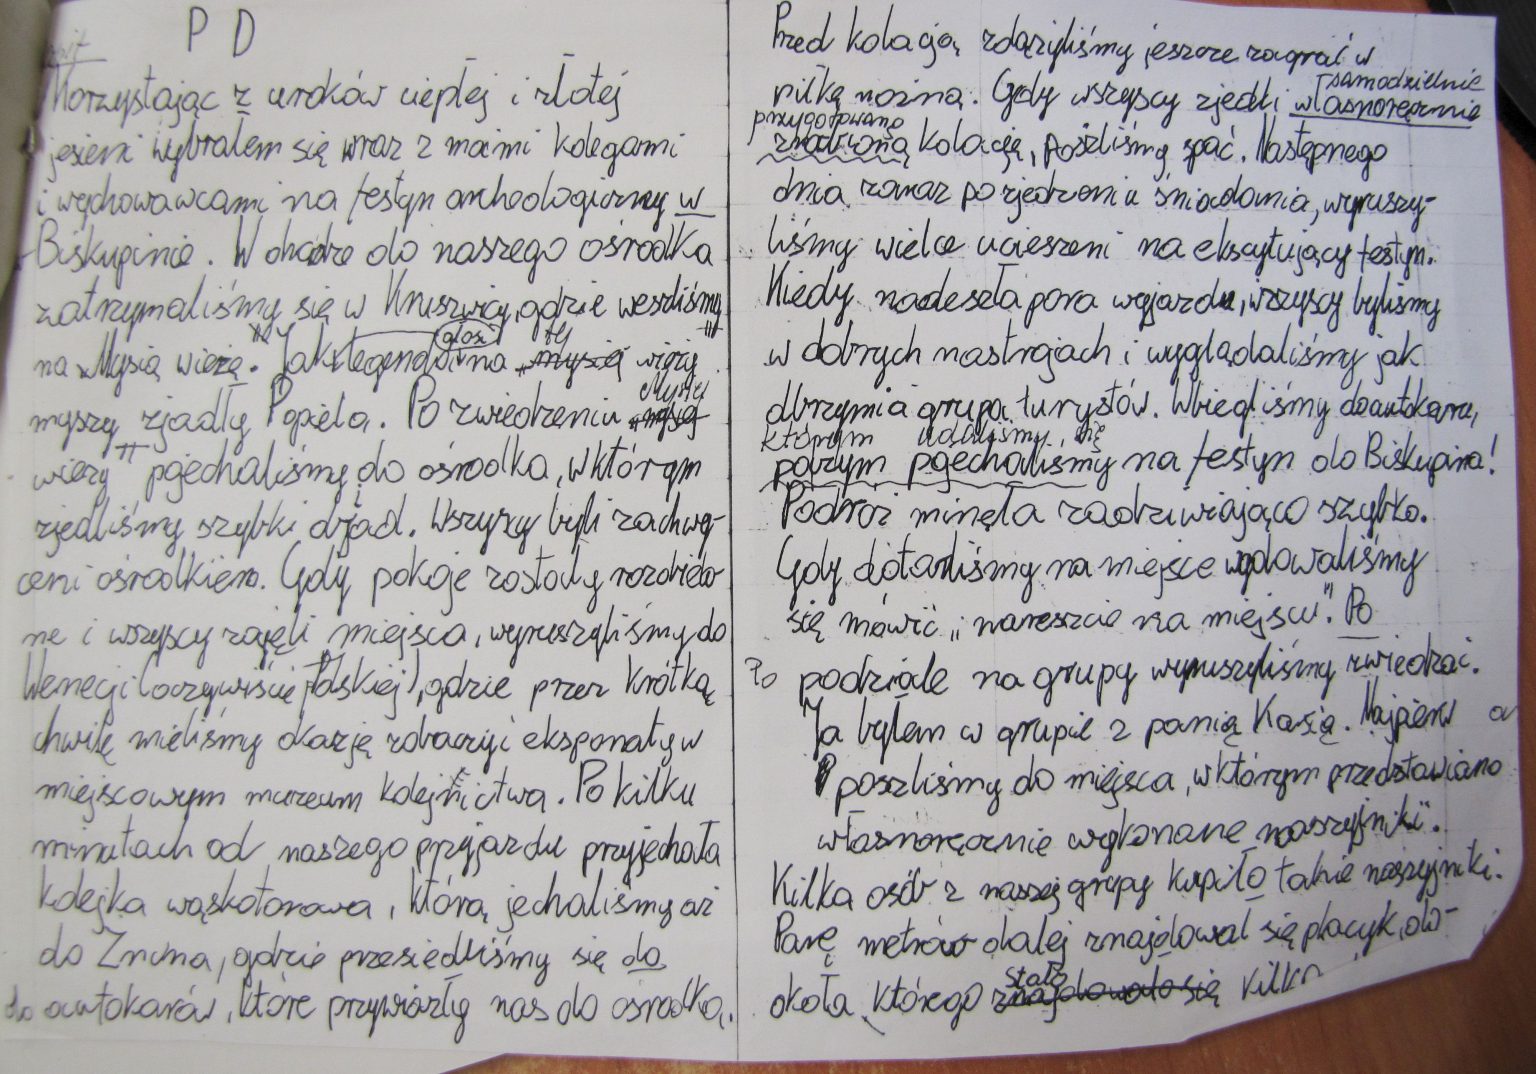 P D
Korzystając z uroków ciepłej i złotej
jesieni wybrałem się wraz z moimi kolegami
i wychowawcami na festyn archeologiczny w
Biskupinie. W drodze do naszego ośrodka
zatrzymaliśmy się w Kruszwicy, gdzie weszliśmy
na „Mysią wieżę". Jak legenda głosi na „mysiej wieży"
myszy zjadły Popiela. Po zwiedzeniu „mysiej Mysiej
wieży" pojechaliśmy do ośrodka, w którym
zjedliśmy szybki obiad. Wszyscy byli zachwy-
ceni ośrodkiem. Gdy pokoje zostały rozdzielo
ne i wszyscy zajęli miejsca, wyruszyliśmy do
Wenecji (oczywiście Polskiej), gdzie przez krótką
chwilę mieliśmy okazję zobaczyć eksponaty w
miejscowym muzeum kolejnictwa. Po kilku
minutach od naszego przyjazdu przyjechała
kolejka wąskotorowa, którą jechaliśmy aż
do Żnina, gdzie przesiedliśmy się do
do autokarów, które przywiozły nas do ośrodka.
Przed kolacją zdążyliśmy jeszcze zagrać w
samodzielnie
piłkę nożną. Gdy wszyscy zjedli własnoręcznie
przygotowaną
zrobioną kolację, poszliśmy spać. Następnego
dnia zaraz po zjedzeniu śniadania, wyruszy-
liśmy wielce ucieszeni na ekscytujący festyn.
Kiedy nadeszła pora wyjazdu, wszyscy byliśmy
w dobrych nastrojach i wyglądaliśmy jak
olbrzymia grupa turystów. Wbiegliśmy do autokaru,
którym udaliśmy się
poczym pojechaliśmy na festyn do Biskupina!
Podróż minęła zadziwiająco szybko.
Gdy dotarliśmy na miejsce radowaliśmy
się mówić „nareszcie na miejscu". Po
Po podziale na grupy wyruszyliśmy zwiedzać.
Ja byłem w grupie z panią Kasią. Najpierw
poszliśmy do miejsca, w którym przedstawiano
własnoręcznie wykonane naszyjniki".
Kilka osób z naszej grupy kupiło takie naszyjniki.
Parę metrów dalej znajdował się placyk, do-
stało
okoła którego znajdowało się kilka